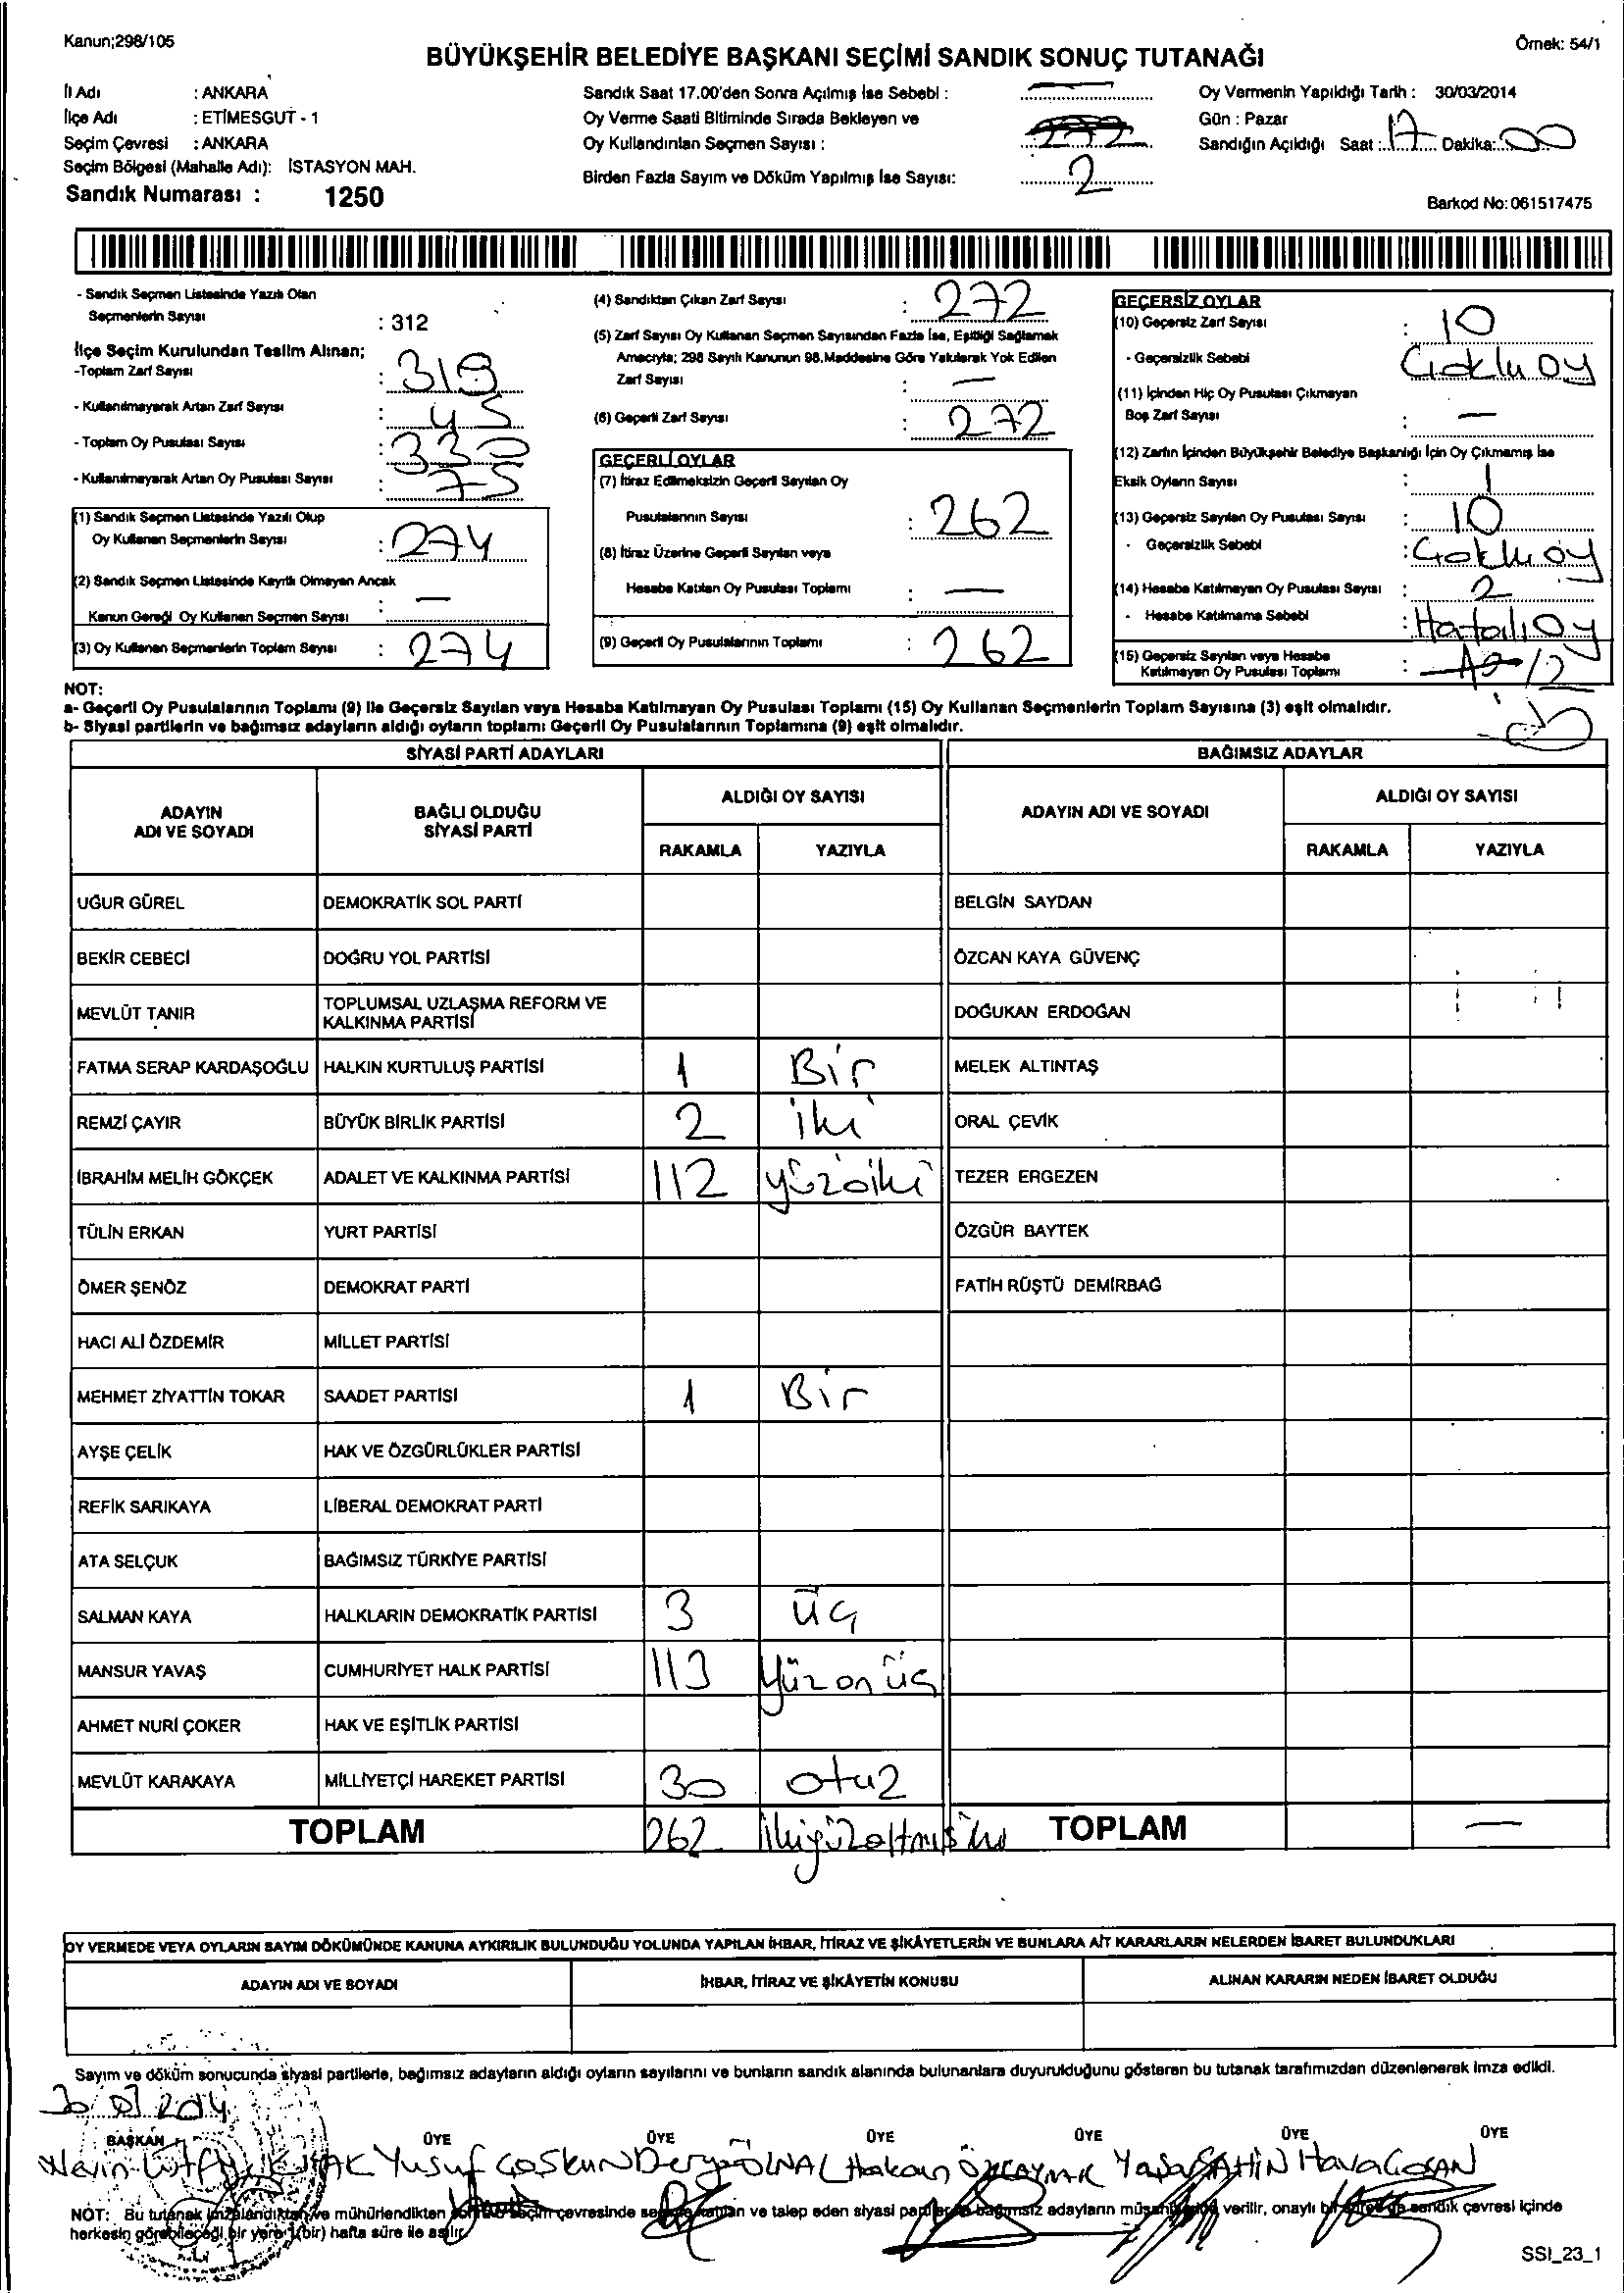 Kanun;298/105
Örnek: 54/1
BÜYÜKŞEHİR BELEDİYE BAŞKANI SEÇİMİ SANDIK SONUÇ TUTANAĞI
İl Adı : ANKARA
İlçe Adı : ETİMESGUT - 1
Seçim Çevresi : ANKARA
Seçim Bölgesi (Mahalle Adı): İSTASYON MAH.
Sandık Numarası : 1250
Sandık Saat 17.00'den Sonra Açılmış İse Sebebi : —
Oy Verme Saati Bitiminde Sırada Bekleyen ve
Oy Kullandırılan Seçmen Sayısı :
Birden Fazla Sayım ve Döküm Yapılmış İse Sayısı: 2
Oy Vermenin Yapıldığı Tarih : 30/03/2014
Gün : Pazar
Sandığın Açıldığı Saat : 17 Dakika: 00
Barkod No: 061517475
- Sandık Seçmen Listesinde Yazılı Olan
Seçmenlerin Sayısı : 312
İlçe Seçim Kurulundan Teslim Alınan;
-Toplam Zarf Sayısı : 319
- Kullanılmayarak Artan Zarf Sayısı : 45
- Toplam Oy Pusulası Sayısı : 330
- Kullanılmayarak Artan Oy Pusulası Sayısı : 75
(1) Sandık Seçmen Listesinde Yazılı Olup
Oy Kullanan Seçmenlerin Sayısı : 274
(2) Sandık Seçmen Listesinde Kayıtlı Olmayan Ancak
Kanun Gereği Oy Kullanan Seçmen Sayısı : —
(3) Oy Kullanan Seçmenlerin Toplam Sayısı : 274
(4) Sandıktan Çıkan Zarf Sayısı : 272
(5) Zarf Sayısı Oy Kullanan Seçmen Sayısından Fazla İse, Eşitliği Sağlamak
Amacıyla; 298 Sayılı Kanunun 98.Maddesine Göre Yakılarak Yok Edilen
Zarf Sayısı : —
(6) Geçerli Zarf Sayısı : 272
GEÇERLİ OYLAR
(7) İtiraz Edilmeksizin Geçerli Sayılan Oy
Pusulalarının Sayısı : 262
(8) İtiraz Üzerine Geçerli Sayılan veya
Hesaba Katılan Oy Pusulası Toplamı : —
(9) Geçerli Oy Pusulalarının Toplamı : 262
GEÇERSİZ OYLAR
(10) Geçersiz Zarf Sayısı : 10
- Geçersizlik Sebebi Çoklu oy
(11) İçinden Hiç Oy Pusulası Çıkmayan
Boş Zarf Sayısı : —
(12) Zarfın İçinden Büyükşehir Belediye Başkanlığı İçin Oy Çıkmamış İse
Eksik Oyların Sayısı : 1
(13) Geçersiz Sayılan Oy Pusulası Sayısı : 10
- Geçersizlik Sebebi : Çoklu oy
(14) Hesaba Katılmayan Oy Pusulası Sayısı : 2
- Hesaba Katılmama Sebebi : Hatalı Oy
(15) Geçersiz Sayılan veya Hesaba
Katılmayan Oy Pusulası Toplamı : 12
NOT:
a- Geçerli Oy Pusulalarının Toplamı (9) ile Geçersiz Sayılan veya Hesaba Katılmayan Oy Pusulası Toplamı (15) Oy Kullanan Seçmenlerin Toplam Sayısına (3) eşit olmalıdır.
b- Siyasi partilerin ve bağımsız adayların aldığı oyların toplamı Geçerli Oy Pusulalarının Toplamına (9) eşit olmalıdır.
SİYASİ PARTİ ADAYLARI
BAĞIMSIZ ADAYLAR
ADAYIN ADI VE SOYADI
BAĞLI OLDUĞU SİYASİ PARTİ
ALDIĞI OY SAYISI
RAKAMLA YAZIYLA
ADAYIN ADI VE SOYADI
ALDIĞI OY SAYISI
RAKAMLA YAZIYLA
UĞUR GÜREL DEMOKRATİK SOL PARTİ BELGİN SAYDAN
BEKİR CEBECİ DOĞRU YOL PARTİSİ ÖZCAN KAYA GÜVENÇ
MEVLÜT TANIR TOPLUMSAL UZLAŞMA REFORM VE KALKINMA PARTİSİ DOĞUKAN ERDOĞAN
FATMA SERAP KARDAŞOĞLU HALKIN KURTULUŞ PARTİSİ 1 Bir MELEK ALTINTAŞ
REMZİ ÇAYIR BÜYÜK BİRLİK PARTİSİ 2 iki ORAL ÇEVİK
İBRAHİM MELİH GÖKÇEK ADALET VE KALKINMA PARTİSİ 112 yüzoiki TEZER ERGEZEN
TÜLİN ERKAN YURT PARTİSİ ÖZGÜR BAYTEK
ÖMER ŞENÖZ DEMOKRAT PARTİ FATİH RÜŞTÜ DEMİRBAĞ
HACI ALİ ÖZDEMİR MİLLET PARTİSİ
MEHMET ZİYATTİN TOKAR SAADET PARTİSİ 1 Bir
AYŞE ÇELİK HAK VE ÖZGÜRLÜKLER PARTİSİ
REFİK SARIKAYA LİBERAL DEMOKRAT PARTİ
ATA SELÇUK BAĞIMSIZ TÜRKİYE PARTİSİ
SALMAN KAYA HALKLARIN DEMOKRATİK PARTİSİ 3 üç
MANSUR YAVAŞ CUMHURİYET HALK PARTİSİ 113 yüzonüç
AHMET NURİ ÇOKER HAK VE EŞİTLİK PARTİSİ
MEVLÜT KARAKAYA MİLLİYETÇİ HAREKET PARTİSİ 30 otuz
TOPLAM 262 ikiyüzaltmışiki TOPLAM —
OY VERMEDE VEYA OYLARIN SAYIM DÖKÜMÜNDE KANUNA AYKIRILIK BULUNDUĞU YOLUNDA YAPILAN İHBAR, İTİRAZ VE ŞİKÂYETLERİN VE BUNLARA AİT KARARLARIN NELERDEN İBARET BULUNDUKLARI
ADAYIN ADI VE SOYADI İHBAR, İTİRAZ VE ŞİKÂYETİN KONUSU ALINAN KARARIN NEDEN İBARET OLDUĞU
Sayım ve döküm sonucunda siyasi partilerle, bağımsız adayların aldığı oyların sayılarını ve bunların sandık alanında bulunanlara duyurulduğunu gösteren bu tutanak tarafımızdan düzenlenerek imza edildi.
30/03/2014
BAŞKAN ÜYE ÜYE ÜYE ÜYE ÜYE ÜYE
Yusuf COŞKUN Derya ÜNAL Hakan ÖZKAYNAK Yaşar ŞAHİN Hava
NOT: Bu tutanak imzalandıktan ve mühürlendikten çevresinde ve talep eden siyasi bağımsız adayların verilir, onaylı sandık çevresi içinde
herkesin görebileceği bir yere 1(bir) hafta süre ile asılır.
SSI_23_1